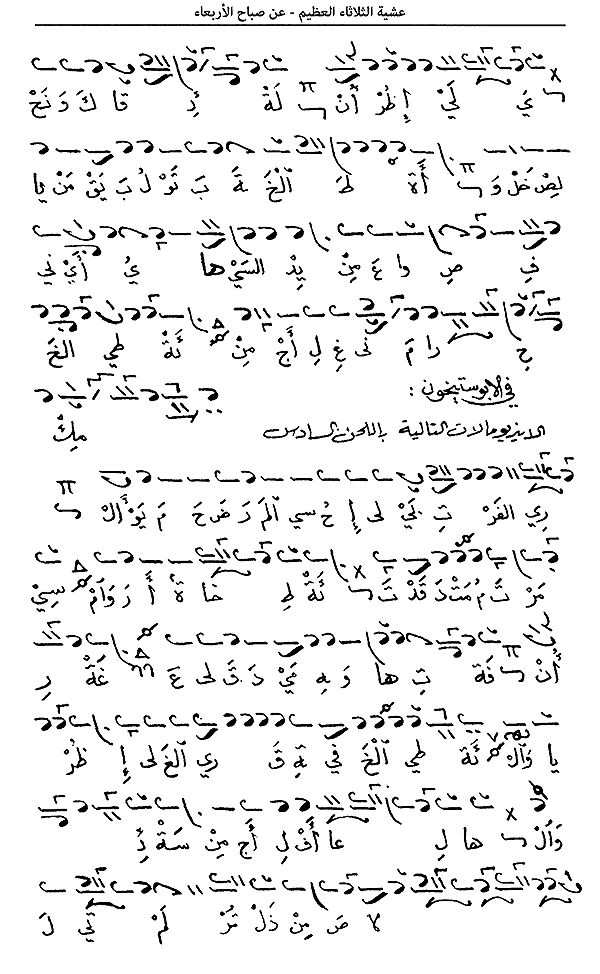 عشية الثلاثاء العظيم - عن صباح الأربعاء
يَ لَيْ إِظُرْ أَنْ لَةْ ذِ قا كَ وَ نَحْ
لِصْ خَلْ وَ أَةْ طَ اَلْخَ ةَ بَ تَوْ لُ بَ يَقْ مَنْ يا
فِ صِ وا عَ مِنْ يِذْ السَيْ ها يُ أَيْ ني
جِ را مَ نى غِ لِ أَجْ مِنْ ئَةْ طي الخَ
في الابوستيخون :
الايذيومالات التالية باللحن السادس مِكْ
ري الفَرْ تِ بَيْ لى إِ حُ سي اَلمَ رَ ضَ حَ مَ يَوْ أَلْ
مَرْ تَ مُ مَتْ دَ قَدْ تَ ئَةْ طِ خا ةٌ أَ رَ وَاَمْ سِيْ
أَنْ فَةْ تِ ها وَ هِ مَيْ دَ قَ لى عَ غَةْ رِ
يا وَاَلْ ئَةْ طي اَلْخَ في ةِ قَ ري اَلْغَ لى إِ ظُرْ
وَاَلْ ها لِ عا أَفْ لِ أَجْ مِنْ سَةْ
لا صَ مِنْ ذَلْ تُرْ لَمْ تي لَ